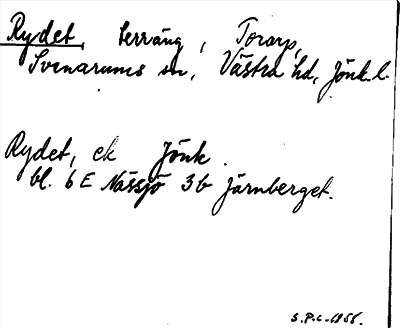 Rydet, terräng, Torarp,
Svenarums sn, Västra hd, Jönk. l.
Rydet, ek Jönk.
bl. 6 E Nässjö 3b Järnberget.
S.P.C. 1956.